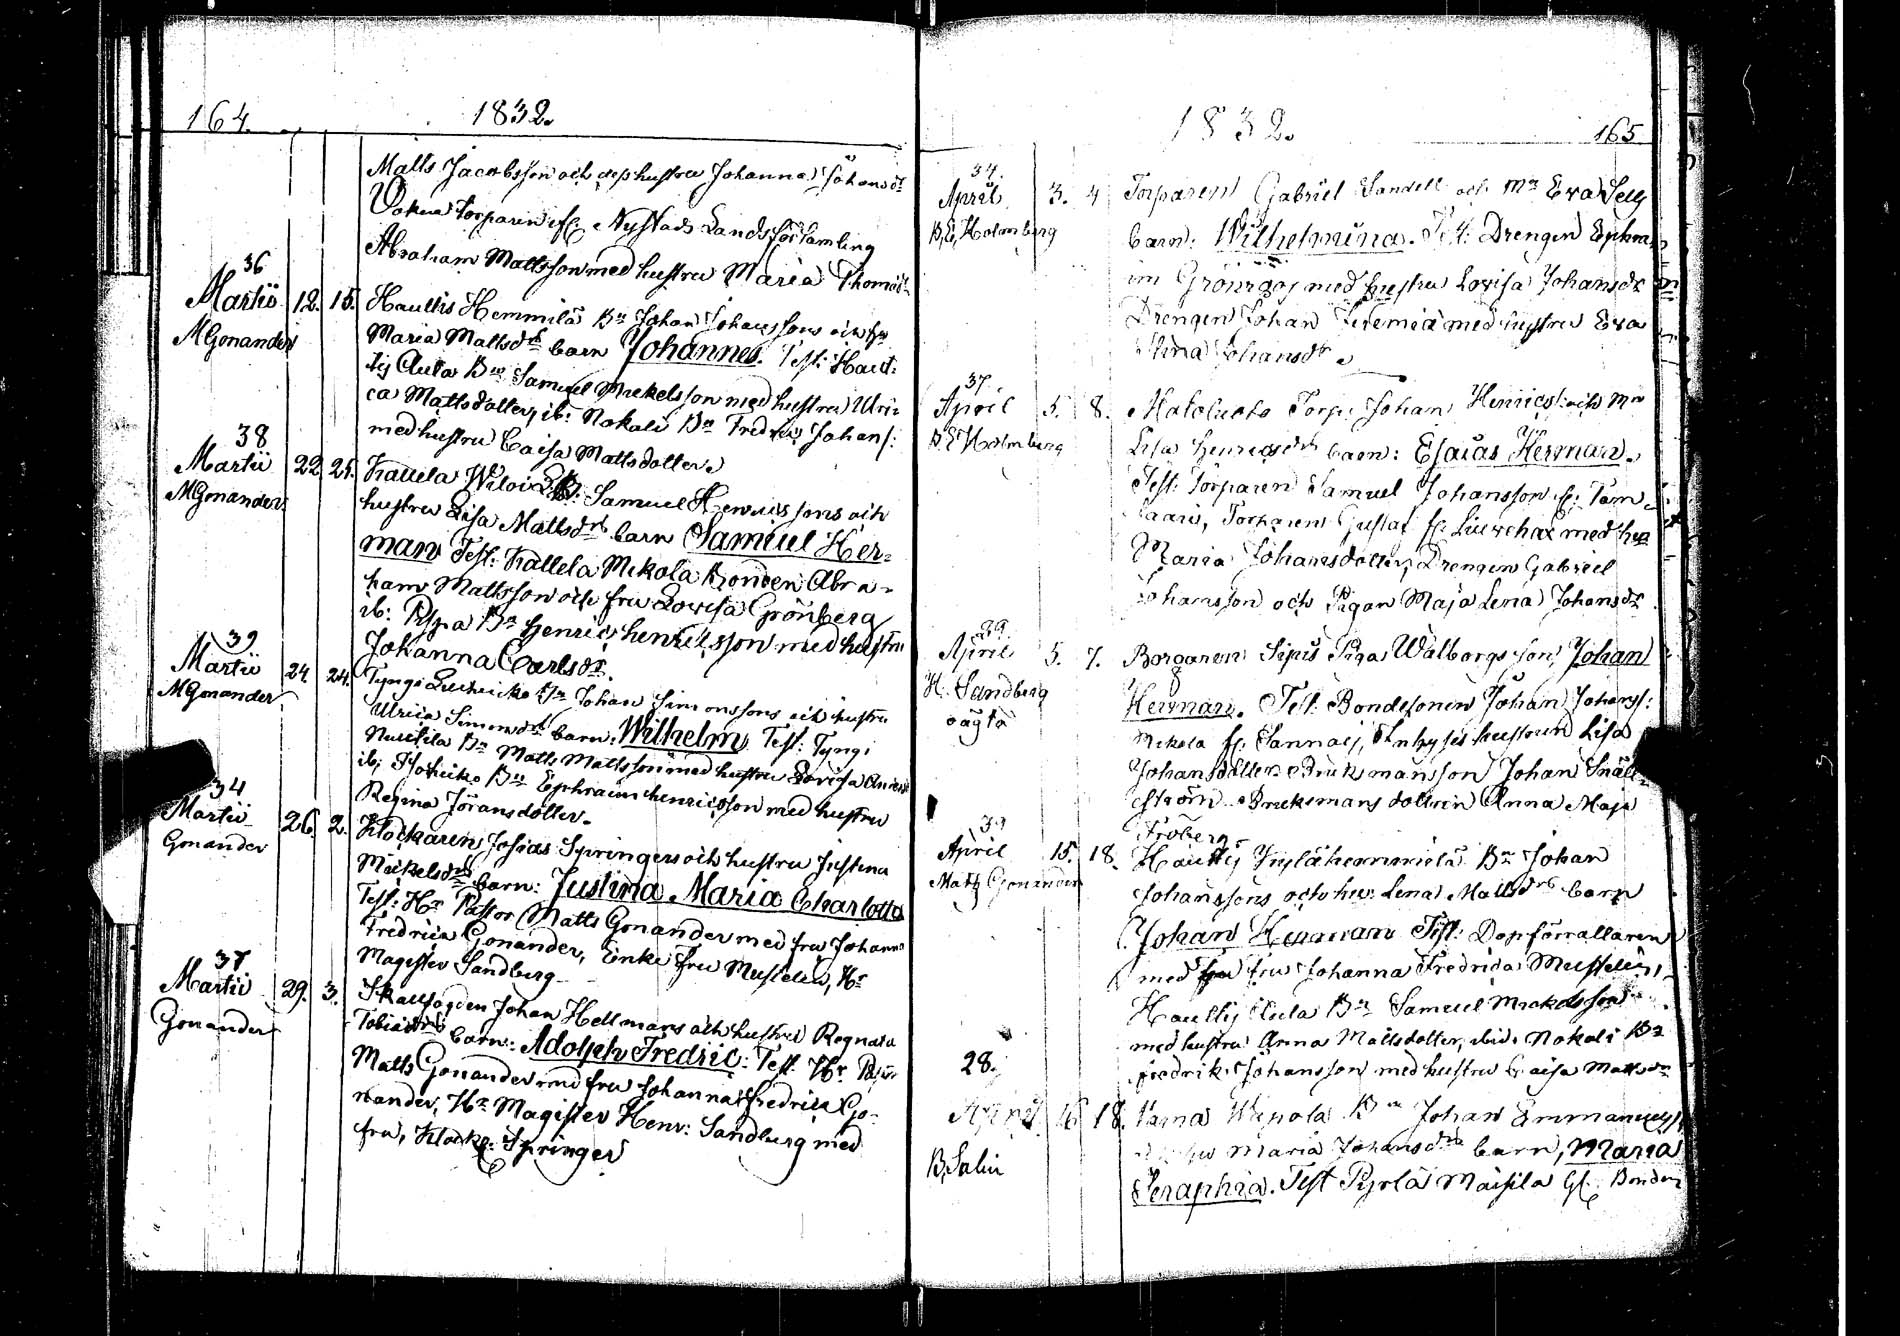 164. 1832.
Matts Jacobsson och dess hustru Johanna Johansdr
Torparen fr. Nystads Landsförsamling
Abraham Mattsson med hustru Maria Thomasdr
36
Martii 12. 15. Hautlis Hemmilä Bn Johan Johanssons och hu
MGonander Maria Mattsdr barn Johannes. Test: Haut:
tis Aula Bn Samuel Mickelsson med hustru Ulri:
ca Mattsdotter, ib: Nokala Bn Fredric Johans:
med hustru Caisa Mattsdotter.
38
Martii 22 25. Kallela Samuel Henricssons och
MGonander hustru Lisa Mattsdr barn Samuel Her=
man Test: Kallela Mikola Bonden Abra=
ham Mattsson och fru Lovisa Grönberg
ib: Pispa Bn Henric Henricsson med hustru
Johanna Carlsdr.
39
Martii 24 24. Tyngi Bn Johan Simonssons och hustru
MGonander Ulrica Simonsdr barn: Wilhelm Test: Tyngi
Nuutila Bn Matts Mattsson med hustru Lovisa
ib: Bn Ephraim Henricsson med hustru
Regina Jöransdotter.
34
Martii 26. 2. Klockaren Josias Springers och hustru Justina
Gonander Mickelsdr barn: Justina Maria Charlotta
Test: Hr Pastor Matts Gonander med fru Johanna
Fredrica Gonander, Enke Fru Musselin, Hr
Magister Sandberg
37
Martii 29. 3. Johan Hellmans och hustru Regnata
Gonander Tobiaedr barn: Adolph Fredric: Test: Hr Pastor
Matts Gonander med fru Johanna Fredrica Go=
nander, Hr Magister Henr: Sandberg med
fru, Klock: Springer
1832. 165
34.
April 3. 4 Torparen Gabriel Sandell och Mn Eva
B,E,Holmberg barn: Wilhelmina. Test: Drengen Ephra
im Grönroos med hustru Lovisa Johansdr
Drengen Johan Jeremia med hustru Eva
Stina Johansdr
37.
April 5. 8. Torp: Johan Henricss: och Mn
B.E Holmberg Lisa Henricsdr barn: Esaias Herman.
Test: Torparen Samuel Johansson fr: Tam
saari, Torparen Gustaf fr med hu
Maria Johansdotter, Drengen Gabriel
Johansson och Pigan Maja Lena Johansdr
29.
April 5. 7. Borgaren Sipis Piga Walborgs son, Johan
H. Sandberg Herman. Test: Bondesonen Johan Johanss:
oägta Mikola fr. Sannais, Inhyses hustrun Lisa
Johansdotter Bruksmansson Johan Snäll
ström Bruksmans dottren Anna Maja
Fröberg
39
April 15. 18. Hautis Yylähemmilä Bn Johan
Matts Gonander Johanssons och hu: Lena Mattsdr barn
Johan Herman Test:
med fru Johanna Fredrica Musselin,
Hautis Aula Bn Samuel Mickelsson
med hustru Anna Mattsdotter, ibid: Nokala Bn
Fredrik Johansson med hustru Caisa Mattsdr
28.
April 16 18. Bn Johan Emmanuels
B,Salin hu Maria Johansdr barn, Maria
Seraphia. Test Pyrlä Maisila Gl: Bonden